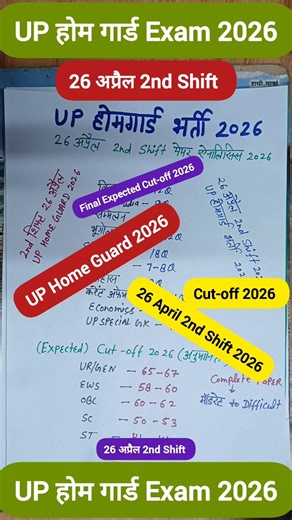 UP होम गार्ड Exam 2026
26 अप्रैल 2nd Shift
UP होमगार्ड भर्ती 2026
26 अप्रैल 2nd Shift पेपर ऐनालिसिस 2026
Final Expected Cut-off 2026
2nd शिफ्ट 26 अप्रैल
UP HOME GUARD 2026
26 अप्रैल 2nd Shift
UP होमगार्ड भर्ती 2026
UP Home Guard 2026
18Q
7-8Q
Cut-off 2026
26 April 2nd Shift 2026
Economics
UP SPECIAL GK
(Expected) Cut-off 2026
UR/GEN - 65-67
EWS - 58-60
OBC - 60-62
SC - 50-53
ST
मॉडरेट to Difficult
26 अप्रैल 2nd Shift
UP होम गार्ड Exam 2026